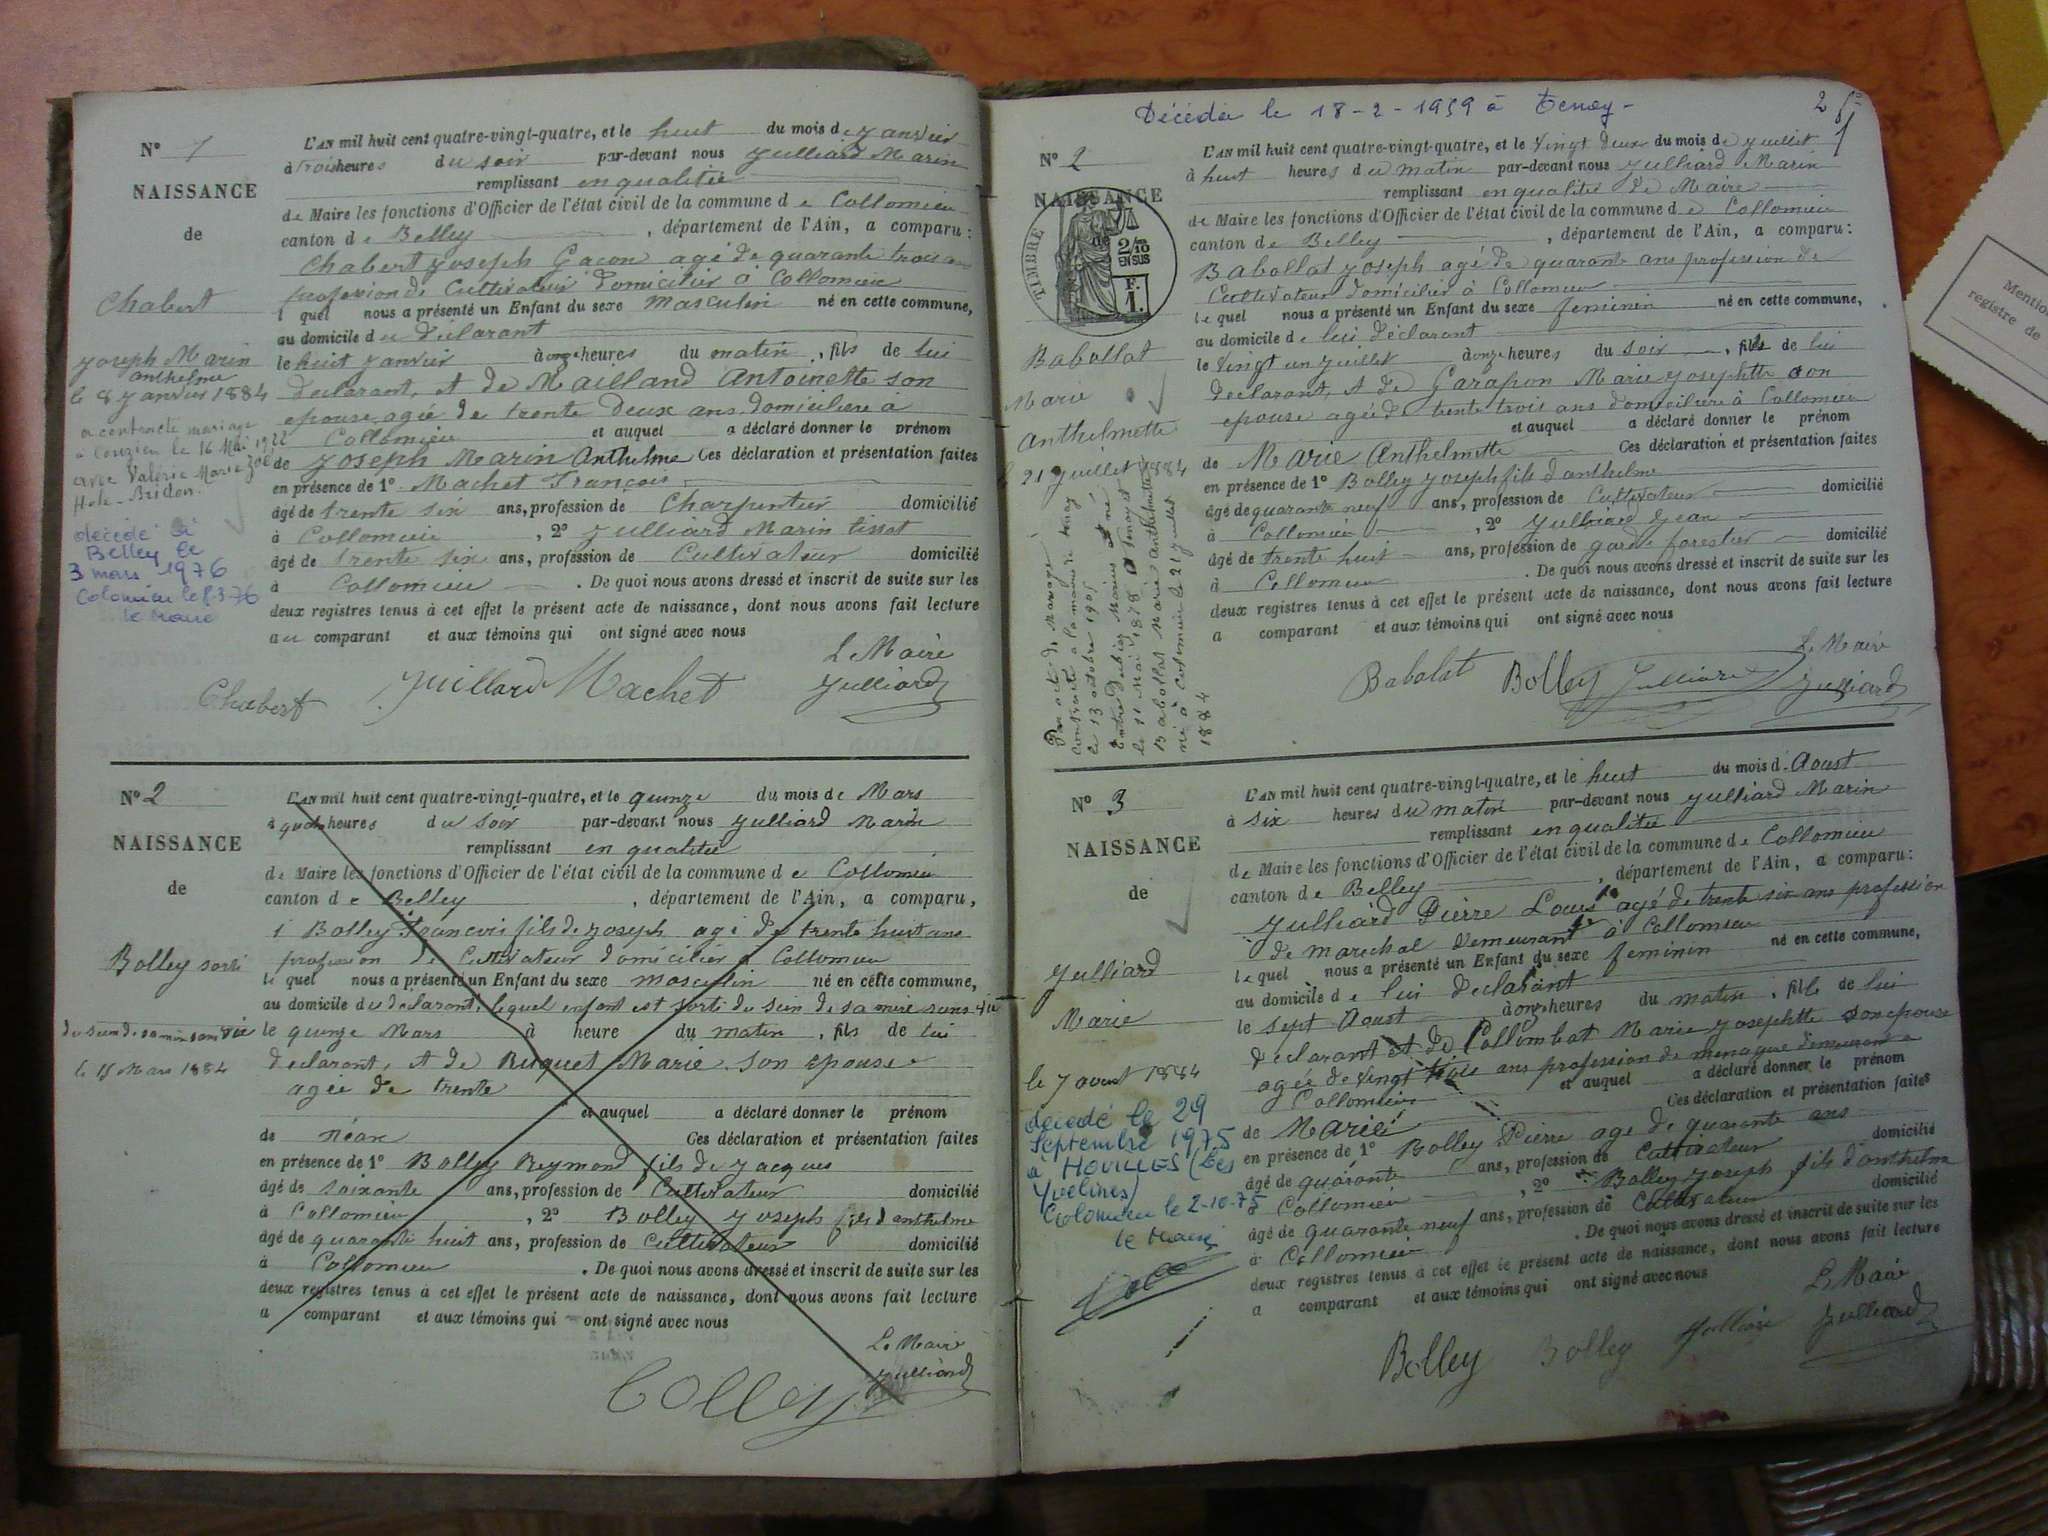 N° 1
NAISSANCE
de
Chabert
Joseph Marin
anthelme
le 8 Janvier 1884
a contracté mariage
à Conzieu le 16 Mai 1922
avec Valérie Marie Zoé
décédé à
Belley le
3 mars 1976
Colomieu le 8-3-76
le Maire
L'AN mil huit cent quatre-vingt-quatre, et le huit du mois de Janvier
à trois heures du soir par-devant nous Julliard Marin
remplissant en qualitée
de Maire les fonctions d'Officier de l'état civil de la commune d e Collomieu
canton d e Belley , département de l'Ain, a comparu :
Chabert Joseph Gacon agé de quarante trois ans
profession de Cultivateur domicilier à Collomieu
l quel nous a présenté un Enfant du sexe masculin né en cette commune,
au domicile du déclarant
le huit Janvier à onze heures du matin , fils de lui
déclarant, et de Mailland Antoinette son
epouse agée de trente deux ans domiciliere à
Collomieu et auquel a déclaré donner le prénom
de Joseph Marin Anthelme Ces déclaration et présentation faites
en présence de 1° Machet François
âgé de trente six ans, profession de Charpentier domicilié
à Collomieu , 2° Julliard Marin tissot
âgé de trente six ans, profession de Cultivateur domicilié
à Collomieu . De quoi nous avons dressé et inscrit de suite sur les
deux registres tenus à cet effet le présent acte de naissance, dont nous avons fait lecture
au comparant et aux témoins qui ont signé avec nous
Le Maire
Chabert Juillard Machet Julliard
N° 2
NAISSANCE
de
Bolley sorti
du sein de sa mère sans vie
le 15 Mars 1884
L'AN mil huit cent quatre-vingt-quatre, et le quinze du mois de Mars
à heures du soir par-devant nous Julliard Marin
remplissant en qualitée
de Maire les fonctions d'Officier de l'état civil de la commune d e Collomieu
canton d e Belley , département de l'Ain, a comparu,
Bolley Francois fils de Joseph agé de trente huit ans
profession de Cultivateur domicilier à Collomieu
le quel nous a présenté un Enfant du sexe masculin né en cette commune,
au domicile du déclarant, lequel enfant est sorti du sein de sa mère sans vie
le quinze Mars à heure du matin , fils de lui
déclarant, et de Buquet Marie son epouse
agée de trente
et auquel a déclaré donner le prénom
de néan Ces déclaration et présentation faites
en présence de 1° Bolley Reymond fils de Jacques
âgé de soixante ans, profession de Cultivateur domicilié
à Collomieu , 2° Bolley Joseph fils d'anthelme
âgé de quarante huit ans, profession de Cultivateur domicilié
à Collomieu . De quoi nous avons dressé et inscrit de suite sur les
deux registres tenus à cet effet le présent acte de naissance, dont nous avons fait lecture
a comparant et aux témoins qui ont signé avec nous
Le Maire
Julliard
Bolley
Décédée le 18-2-1959 à Tenay - 2
N° 2
NAISSANCE
de
TIMBRE
2/10
EN SUS
F.
1.
Babollat
Marie
Anthelmette
21 Juillet 1884
Par acte de Mariage
contracté à la mairie de Tenay
le 13 octobre 1905
Marius né
le 11 Mai 1878 à Tenay et
Babollat Marie Anthelmette
né à Colomieu le 21 juillet
1884
L'AN mil huit cent quatre-vingt-quatre, et le vingt deux du mois de Juillet
à huit heures du matin par-devant nous Julliard Marin
remplissant en qualitée de Maire
de Maire les fonctions d'Officier de l'état civil de la commune d e Collomieu
canton de Belley , département de l'Ain, a comparu :
Babollat Joseph agé de quarante ans profession de
Cultivateur domicilier à Collomieu
le quel nous a présenté un Enfant du sexe feminin né en cette commune,
au domicile de lui déclarant
le vingt un Juillet à onze heures du soir , fille de lui
déclarant, et de Garapon Marie Josephtte son
epouse agée de trente trois ans domiciliere à Collomieu
et auquel a déclaré donner le prénom
de Marie Anthelmette Ces déclaration et présentation faites
en présence de 1° Bolley Joseph fils d'anthelme
âgé de quarante neuf ans, profession de Cultivateur domicilié
à Collomieu , 2° Julliard Jean
âgé de trente huit ans, profession de garde forestier domicilié
à Collomieu . De quoi nous avons dressé et inscrit de suite sur les
deux registres tenus à cet effet le présent acte de naissance, dont nous avons fait lecture
a comparant et aux témoins qui ont signé avec nous
Le Maire
Babolat Bolley Julliard Julliard
N° 3
NAISSANCE
de
Julliard
Marie
le 7 aout 1884
décédé le 29
Septembre 1975
à HOUILLES (Les
Yvelines)
Colomieu le 2-10-75
le Maire
L'AN mil huit cent quatre-vingt-quatre, et le huit du mois d'Aoust
à six heures du matin par-devant nous Julliard Marin
remplissant en qualitée
de Maire les fonctions d'Officier de l'état civil de la commune d e Collomieu
canton d e Belley , département de l'Ain, a comparu :
Julliard Pierre Louis agé de trente six ans profession
de marechal demeurant à Collomieu
le quel nous a présenté un Enfant du sexe feminin né en cette commune,
au domicile d e lui declarant
le sept Aoust à onze heures du matin , fille de lui
declarant et de Collombat Marie Josephtte son epouse
agée de vingt trois ans profession de menagere demeurant a
Collomieu et auquel a déclaré donner le prénom
de Marie Ces déclaration et présentation faites
en présence de 1° Bolley Pierre age de quarante ans
âgé de quarante ans, profession de Cultivateur domicilié
Collomieu , 2° Bolley Joseph fils d'anthelme
âgé de quarante neuf ans, profession de Cultivateur domicilié
à Collomieu . De quoi nous avons dressé et inscrit de suite sur les
deux registres tenus à cet effet le présent acte de naissance, dont nous avons fait lecture
a comparant et aux témoins qui ont signé avec nous
Le Maire
Bolley Bolley Julliard Julliard
Mention
registre de